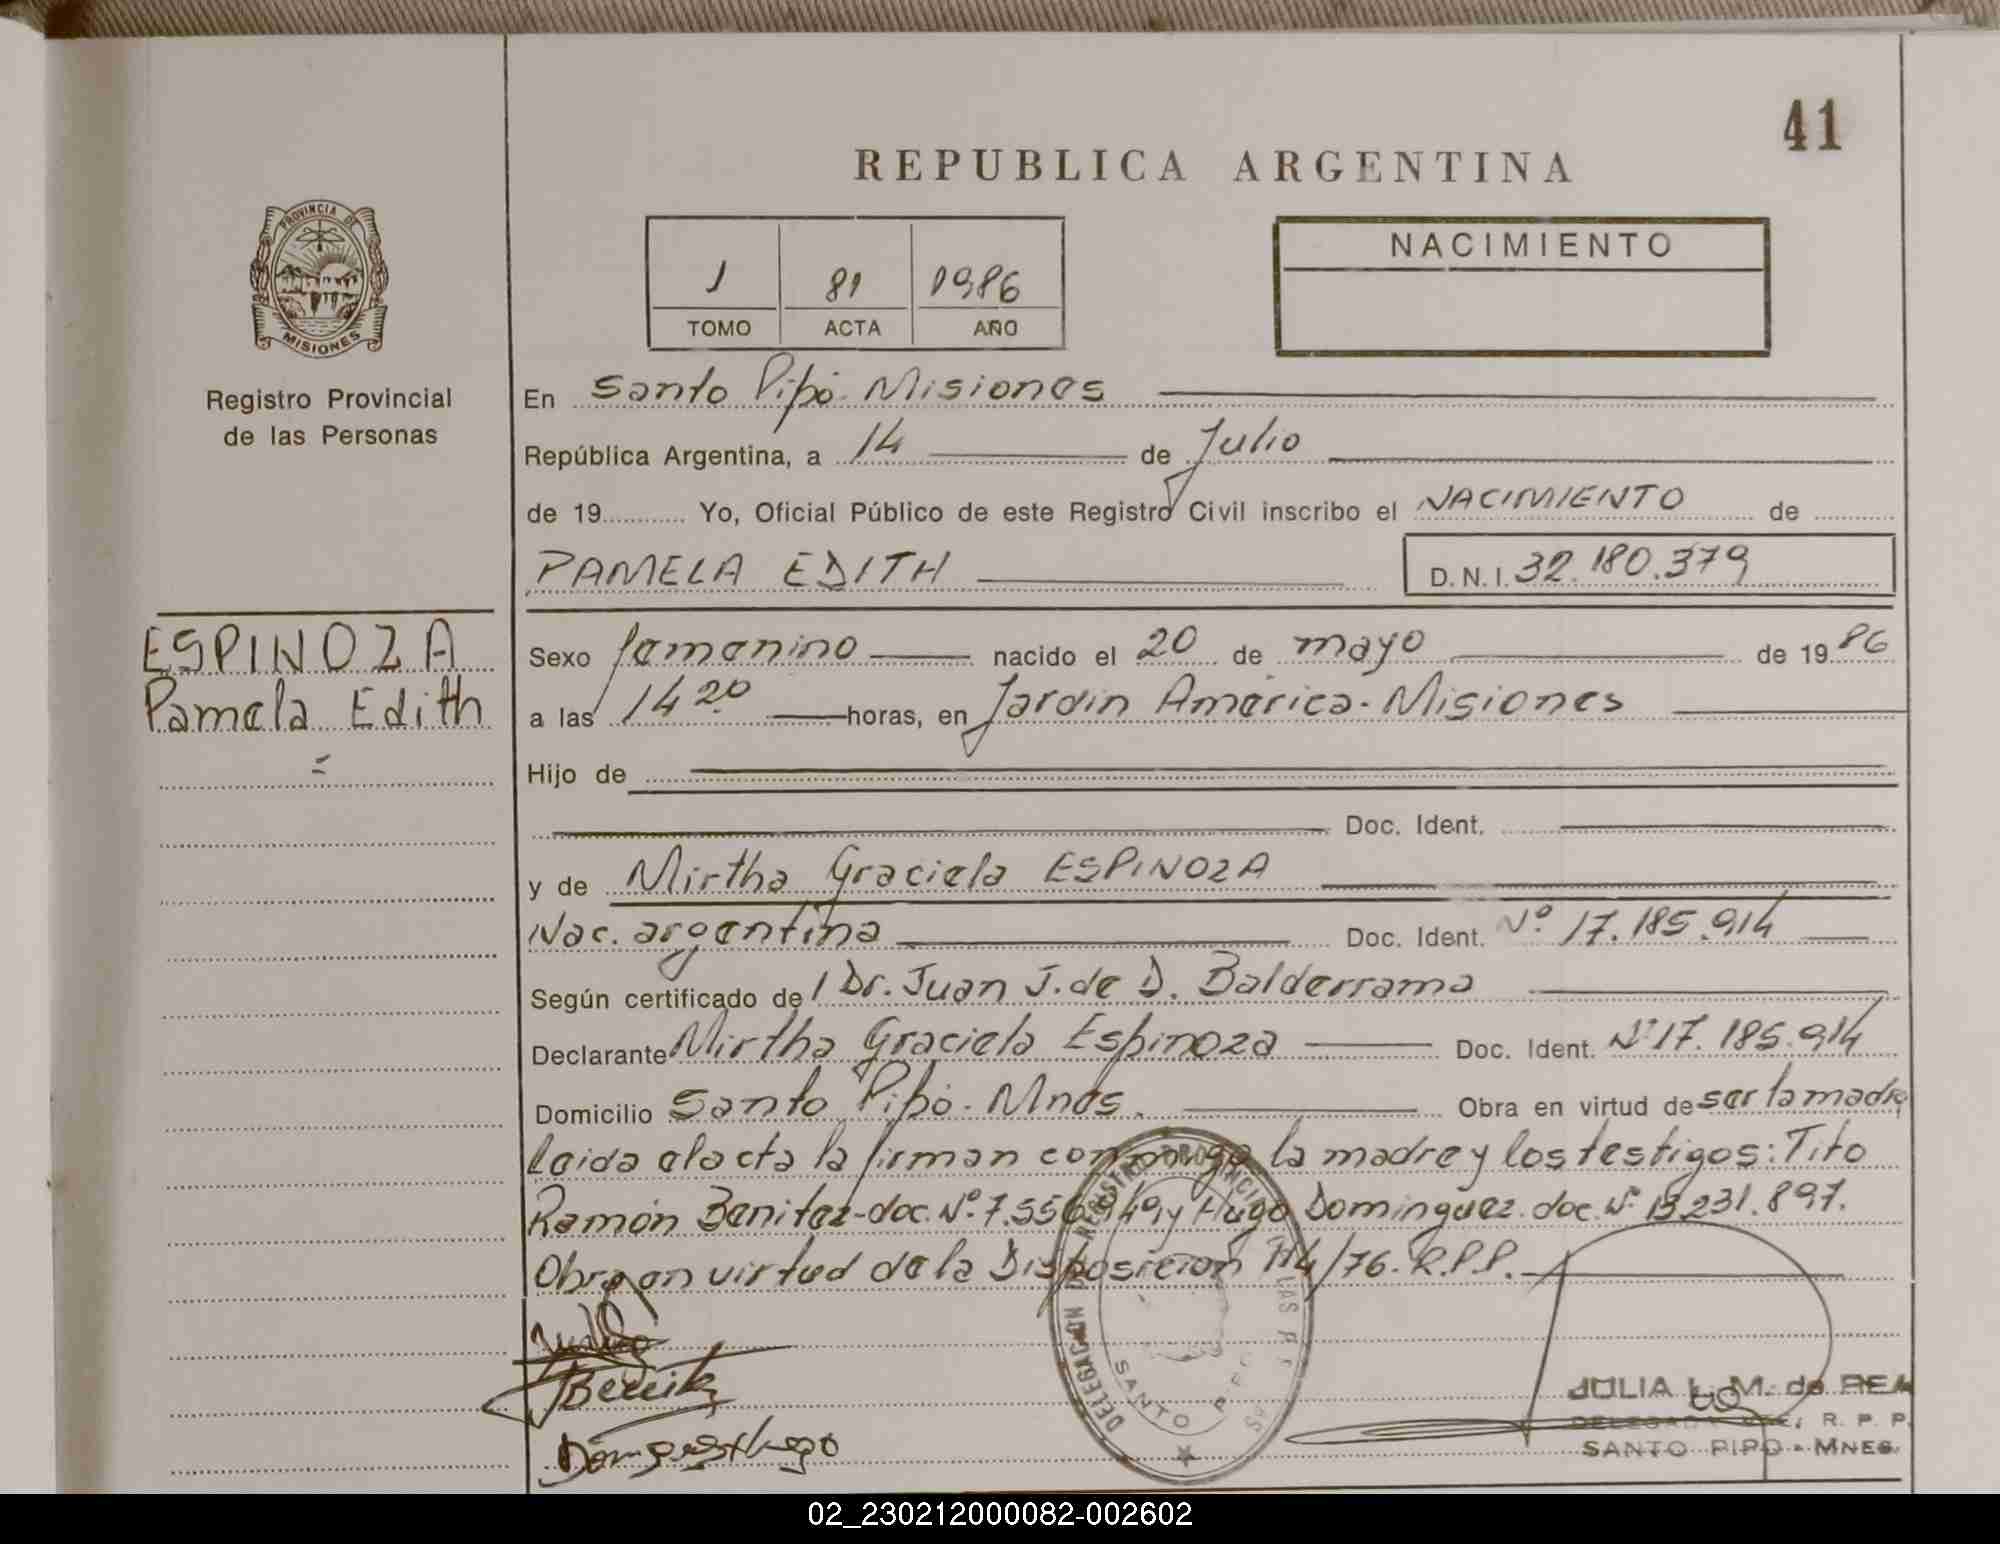 41
REPUBLICA ARGENTINA
PROVINCIA DE
MISIONES
Registro Provincial
de las Personas
1 81 1986
TOMO ACTA AÑO
NACIMIENTO
En Santo Pipó - Misiones
República Argentina, a 14 de Julio
de 19 Yo, Oficial Público de este Registro Civil inscribo el NACIMIENTO de
PAMELA EDITH D.N.I. 32.180.379
ESPINOZA
Pamela Edith
Sexo femenino nacido el 20 de mayo de 1986
a las 14 20 horas, en Jardín América - Misiones
Hijo de
Doc. Ident.
y de Mirtha Graciela ESPINOZA
Nac. argentina Doc. Ident. Nº 17.185.914
Según certificado de l Dr. Juan J. de D. Balderrama
Declarante Mirtha Graciela Espinoza Doc. Ident. Nº 17.185.914
Domicilio Santo Pipó - Mnes. Obra en virtud de ser la madre
Leida el acta la firman conmigo la madre y los testigos: Tito
Ramón Benitez - doc. Nº 7.556.949 y Hugo Dominguez doc. Nº 13.231.897.
Obra en virtud de la Disposición 114/76. R.P.P.
DELEGACION REGISTRO PROVINCIAL LAS
SANTO PIPO
JULIA L. M. de
DELEGADA R. P. P.
SANTO PIPO - MNES.
02_230212000082-002602